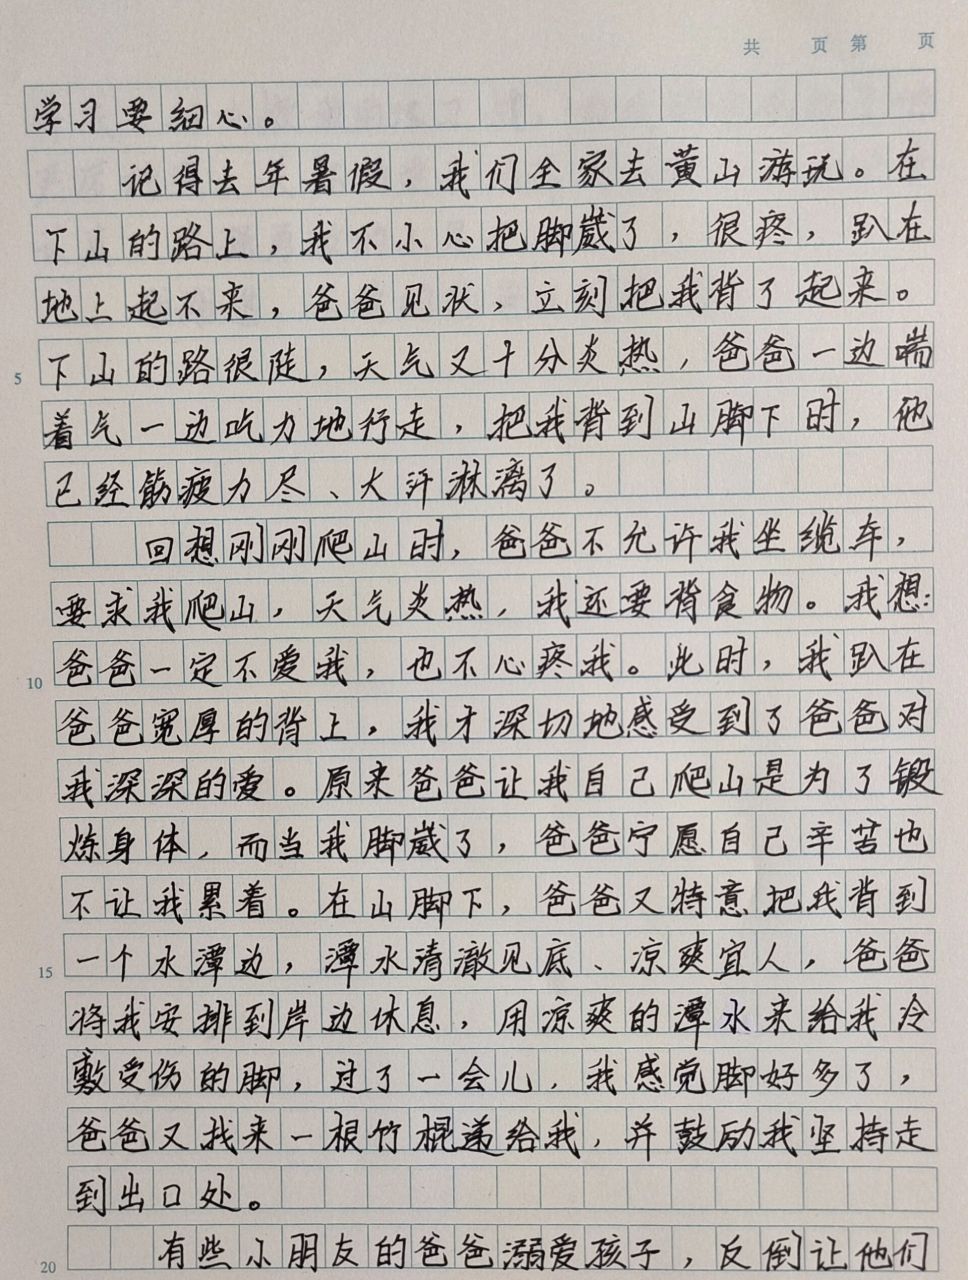 共 页 第 页
学习要细心。
记得去年暑假，我们全家去黄山游玩。在
下山的路上，我不小心把脚崴了，很疼，趴在
地上起不来，爸爸见状，立刻把我背了起来。
5 下山的路很陡，天气又十分炎热，爸爸一边喘
着气一边吃力地行走，把我背到山脚下时，他
已经筋疲力尽、大汗淋漓了。
回想刚刚爬山时，爸爸不允许我坐缆车，
要求我爬山，天气炎热，我还要背食物。我想：
10 爸爸一定不爱我，也不心疼我。此时，我趴在
爸爸宽厚的背上，我才深切地感受到了爸爸对
我深深的爱。原来爸爸让我自己爬山是为了锻
炼身体，而当我脚崴了，爸爸宁愿自己辛苦也
不让我累着。在山脚下，爸爸又特意把我背到
15 一个水潭边，潭水清澈见底、凉爽宜人，爸爸
将我安排到岸边休息，用凉爽的潭水来给我冷
敷受伤的脚，过了一会儿，我感觉脚好多了，
爸爸又找来一根竹棍递给我，并鼓励我坚持走
到出口处。
20 有些小朋友的爸爸溺爱孩子，反倒让他们